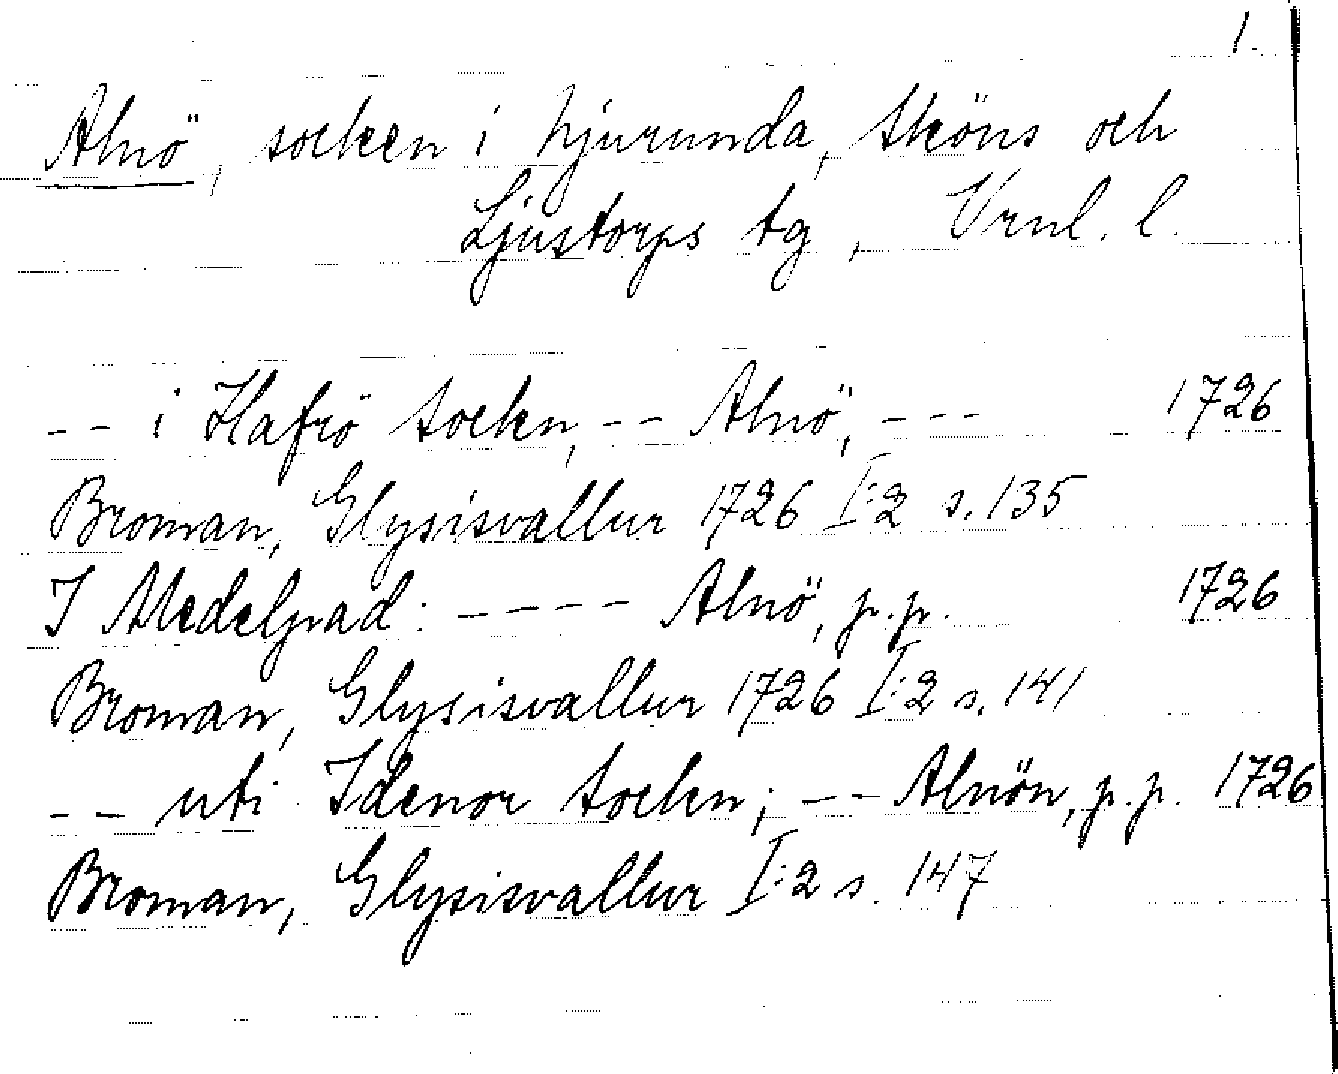 1.
Alnö, socken i Njurunda, Sköns och
Ljustorps tg, Vrnl. l.
-- i Hafrö Sockn, -- Alnö, --- 1726
Broman, Glysisvallur 1726 I:2 s. 135
I Medelpad: ---- Alnö, p.p. 1726
Broman, Glysisvallur 1726 I:2 s. 141
-- uti Idenor Sockn; -- Alnön, p.p. 1726
Broman, Glysisvallur I:2 s. 147